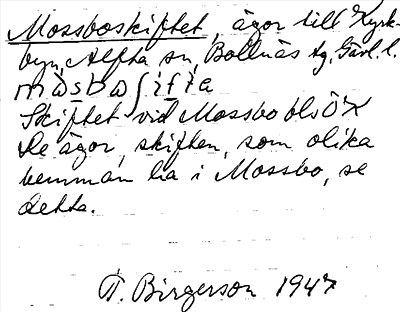 Mossboskiftet, ägor till Kyrk-
byn, Alfta sn, Bollnäs tg, Gävl. l.
Skiftet vid Mossbo bls ÖX
De ägor, skiften, som olika
hemman ha i Mossbo, se
detta.
T. Birgerson 1947